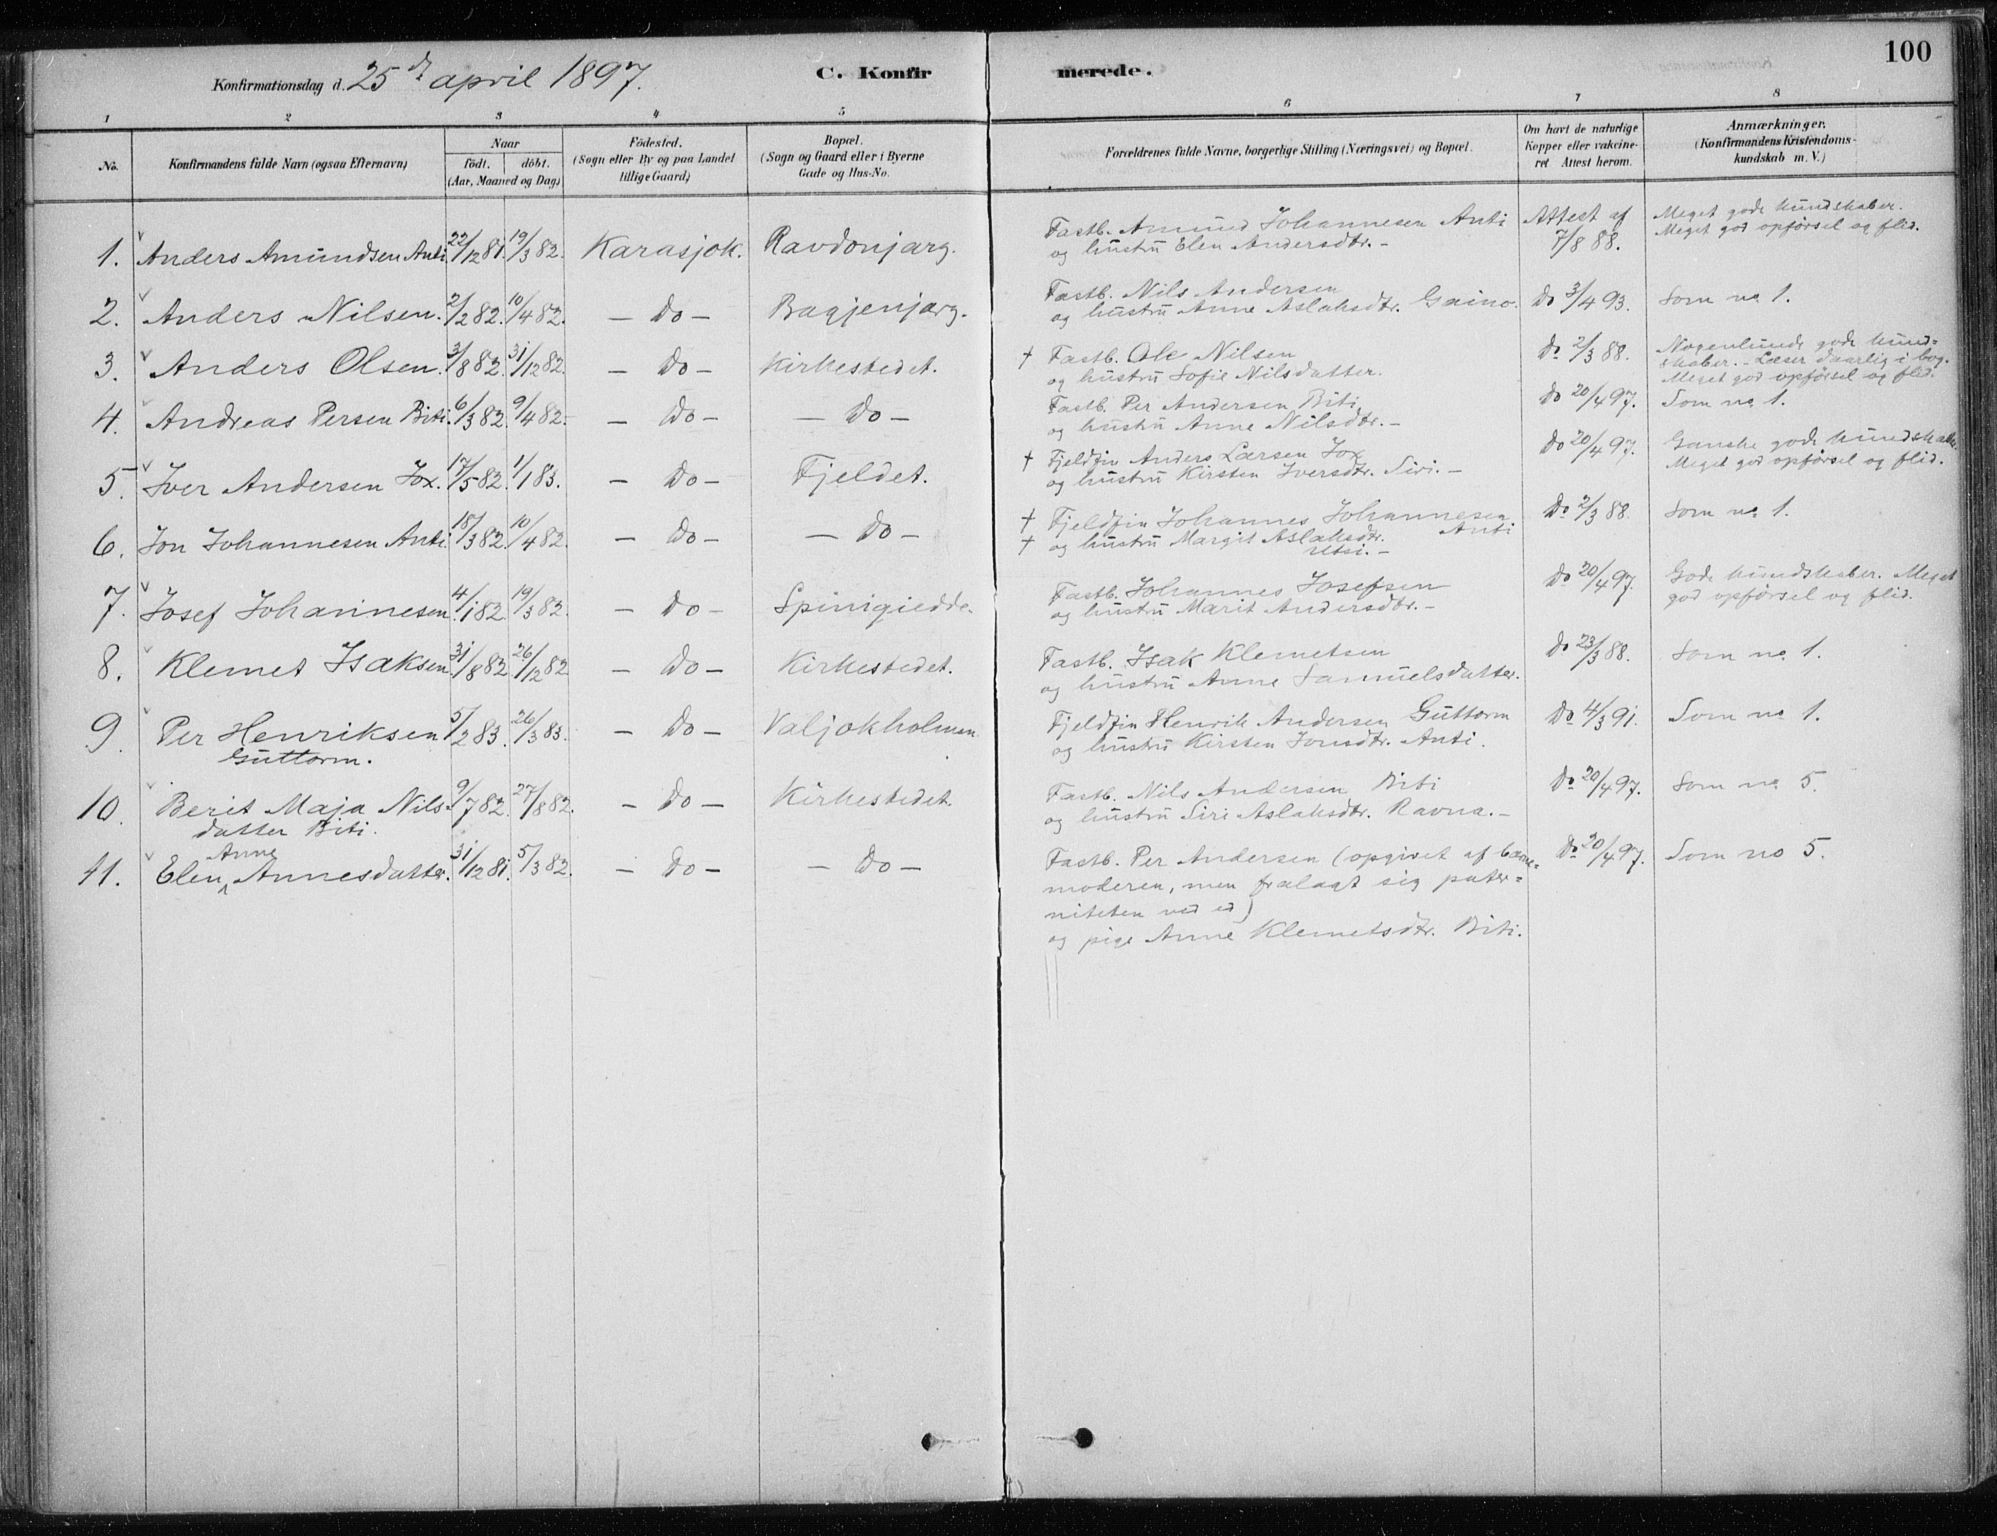 100
Konfirmationsdag d. 25de april 1897.
C. Konfirmerede.
1 2 3 4 5 6 7 8
No.
Konfirmandens fulde Navn (ogsaa Efternavn)
Naar
födt. döbt.
(Aar, Maaned og Dag)
Födested.
(Sogn eller By og paa Landet
tillige Gaard)
Bopæl.
(Sogn og Gaard eller i Byerne
Gade og Hus-No.
Forældrenes fulde Navne, borgerlige Stilling (Næringsvei) og Bopæl.
Om havt de naturlige
Kopper eller vakcine-
ret Attest herom.
Anmærkninger.
(Konfirmandens Kristendoms-
kundskab m. V.)
1. Anders Amundsen Anti 22/12 81. 19/3 82. Karasjok. Ravdonjarg.
Fastb. Amund Johannesen Anti
og hustru Elen Andersdtr. -
Attest af
7/8 88.
Meget gode kundskaber.
Meget god opførsel og flid.
2. Anders Nilsen. 2/2 82. 10/4 82. - Do - Bagjenjarg.
Fastb. Nils Andersen
og hustru Anne Aslaksdtr. Gaino.
Do 3/4 93.
Som no 1.
3. Anders Olsen. 3/8 82. 31/12 82. - Do - Kirkestedet.
† Fastb. Ole Nilsen
og hustru Sofie Nilsdatter.
Do 2/3 88.
Nogenlunde gode kund-
skaber. - Læser daarlig i bog.
Meget god opførsel og flid.
4. Andreas Persen Biti. 6/3 82. 9/4 82. - Do - - Do -
Fastb. Per Andersen Biti
og hustru Anne Nilsdtr. -
Do 20/4 97.
Som no 1.
5. Iver Andersen Jox. 17/5 82. 1/1 83. - Do - Fjeldet.
† Fjeldfin Anders Larsen Jox
og hustru Kirsten Iversdtr. Siri. -
Do 20/4 97.
Ganske gode kundskaber.
Meget god opførsel og flid.
6. Jon Johannesen Anti. 18/3 82. 10/4 82. - Do - - Do -
† Fjeldfin Johannes Johannesen
Anti
† og hustru Margit Aslaksdtr.
Utsi. -
Do 2/3 88.
Som no 1.
7. Josef Johannesen. 4/1 82. 19/3 82. - Do - Spinigiedde.
Fastb. Johannes Josefsen
og hustru Marit Andersdtr. -
Do 20/4 97.
Gode kundskaber. Meget
god opførsel og flid.
8. Klemet Isaksen 31/8 82. 26/12 82. - Do - Kirkestedet.
Fastb. Isak Klemetsen
og hustru Anne Samuelsdatter.
Do 23/3 88.
Som no 1.
9. Per Henriksen 5/2 83. 26/3 83. - Do - Valjokholmen
Guttorm.
Fjeldfin Henrik Andersen Guttorm
og hustru Kirsten Jonsdtr. Anti.
Do 4/3 91.
Som no 1.
10. Berit Maja Nils- 9/7 82. 27/8 82. - Do - Kirkestedet.
datter Biti.
Fastb. Nils Andersen Biti
og hustru Siri Aslaksdtr. Ravna. -
Do 20/4 97.
Som no 5.
Anne
11. Elen Annesdatter. 31/12 81. 5/3 82. - Do - - Do -
Fastb. Per Andersen (opgivet af barne-
moderen, men fralagt sig pater-
niteten ved ed)
og pige Anne Klemetsdtr. Biti.
Do 20/4 97.
Som no 5.